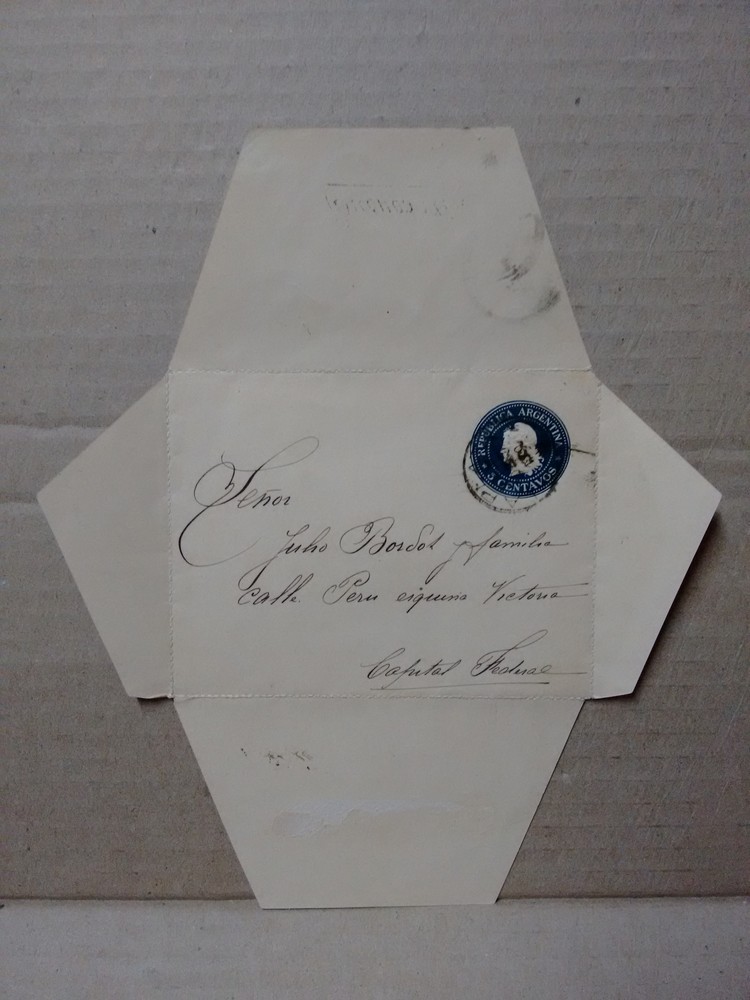 REPUBLICA ARGENTINA
5 CENTAVOS
Señor
Julio Bordot y familia
calle Peru esquina Victoria
Capital Federal